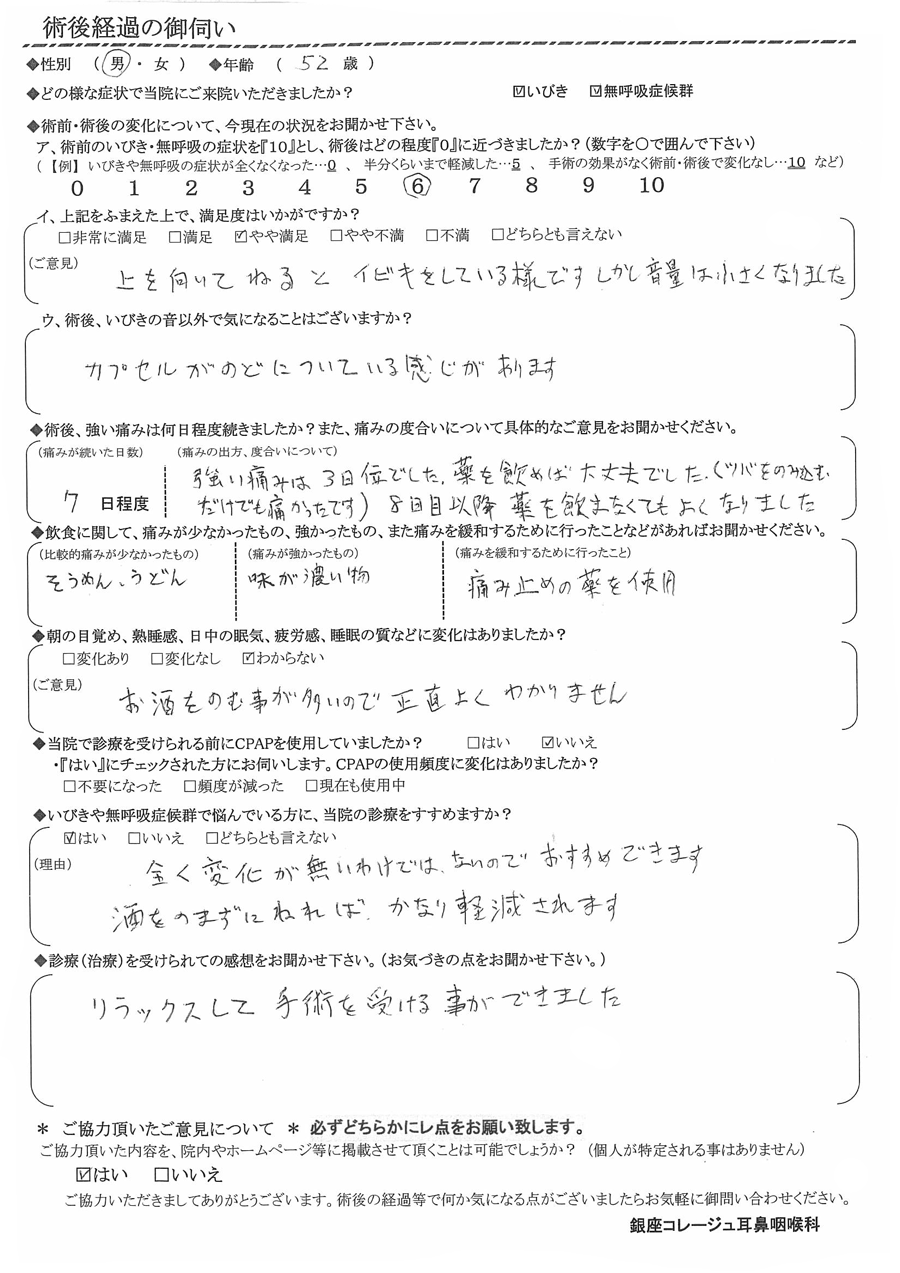 術後経過の御伺い
◆性別 （ 男 ・ 女 ） ◆年齢 （ 52 歳 ）
◆どの様な症状で当院にご来院いただきましたか？ ☑いびき ☑無呼吸症候群
◆術前・術後の変化について、今現在の状況をお聞かせ下さい。
ア、術前のいびき・無呼吸の症状を『10』とし、術後はどの程度『0』に近づきましたか？（数字を〇で囲んで下さい）
（【例】いびきや無呼吸の症状が全くなくなった…0 、 半分くらいまで軽減した…5 、 手術の効果がなく術前・術後で変化なし…10 など）
0 1 2 3 4 5 6 7 8 9 10
イ、上記をふまえた上で、満足度はいかがですか？
□非常に満足 □満足 ☑やや満足 □やや不満 □不満 □どちらとも言えない
（ご意見）
上を向いて ねると イビキをしている様です しかし音量は小さくなりました
ウ、術後、いびきの音以外で気になることはございますか？
カプセルがのどについている感じがあります
◆術後、強い痛みは何日程度続きましたか？また、痛みの度合いについて具体的なご意見をお聞かせください。
（痛みが続いた日数） （痛みの出方、度合いについて）
強い痛みは 3日位でした。薬を飲めば大丈夫でした。（ツバをのみ込む
7 日程度 だけでも痛かったです） 8日目以降 薬を飲まなくてもよくなりました
◆飲食に関して、痛みが少なかったもの、強かったもの、また痛みを緩和するために行ったことなどがあればお聞かせください。
（比較的痛みが少なかったもの） （痛みが強かったもの） （痛みを緩和するために行ったこと）
そうめん、うどん 味が濃い物 痛み止めの薬を使用
◆朝の目覚め、熟睡感、日中の眠気、疲労感、睡眠の質などに変化はありましたか？
□変化あり □変化なし ☑わからない
（ご意見）
お酒をのむ事が多いので 正直よく わかりません
◆当院で診療を受けられる前にCPAPを使用していましたか？ □はい ☑いいえ
・『はい』にチェックされた方にお伺いします。CPAPの使用頻度に変化はありましたか？
□不要になった □頻度が減った □現在も使用中
◆いびきや無呼吸症候群で悩んでいる方に、当院の診療をすすめますか？
☑はい □いいえ □どちらとも言えない
（理由）
全く変化が無いわけでは、ないので おすすめできます
酒をのまずにねれば、かなり軽減されます
◆診療（治療）を受けられての感想をお聞かせ下さい。（お気づきの点をお聞かせ下さい。）
リラックスして 手術を受ける事ができました
＊ ご協力頂いたご意見について ＊ 必ずどちらかにレ点をお願い致します。
ご協力頂いた内容を、院内やホームページ等に掲載させて頂くことは可能でしょうか？ （個人が特定される事はありません）
☑はい □いいえ
ご協力いただきましてありがとうございます。術後の経過等で何か気になる点がございましたらお気軽に御問い合わせください。
銀座コレージュ耳鼻咽喉科